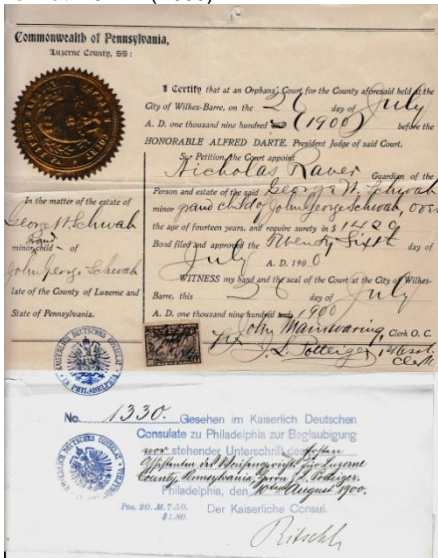 Commonwealth of Pennsylvania,
Luzerne County, SS:
I Certify that at an Orphans' Court for the County aforesaid held at the
City of Wilkes-Barre, on the 26 day of July
A. D. one thousand nine hundred (1900) before the
HONORABLE ALFRED DARTE, President Judge of said Court.
See Petition the Court appoint
Nicholas Raver Guardian of the
Person and estate of the said George W. Schwab
minor grand child of John George Schwab, over
the age of fourteen years, and require surety in $1420
Bond filed and approved the Twenty Sixth day
of July A. D. 1900
WITNESS my hand and the seal of the Court at the City of Wilkes-
Barre, this 26 day of July
A. D. one thousand nine hundred 1900
John Mainwaring, Clerk O. C.
Per J. L. Potteiger, Asst.
Clerk
In the matter of the estate of
George W. Schwab
Grand
minor child of
John George Schwab
late of the County of Luzerne and
State of Pennsylvania.
KAISERLICH DEUTSCHES CONSULAT
IN PHILADELPHIA
No. 1330. Gesehen im Kaiserlich Deutschen
Consulate zu Philadelphia zur Beglaubigung
vor stehender Unterschrift des ersten
Assistenten des Waisengerichts für Luzerne
County, Pennsylvania, Herrn J. L. Potteiger.
Philadelphia, den 10ten August 1900.
Pos. 20. M. 7.50. Der Kaiserliche Consul.
$1.80.
Ritschl